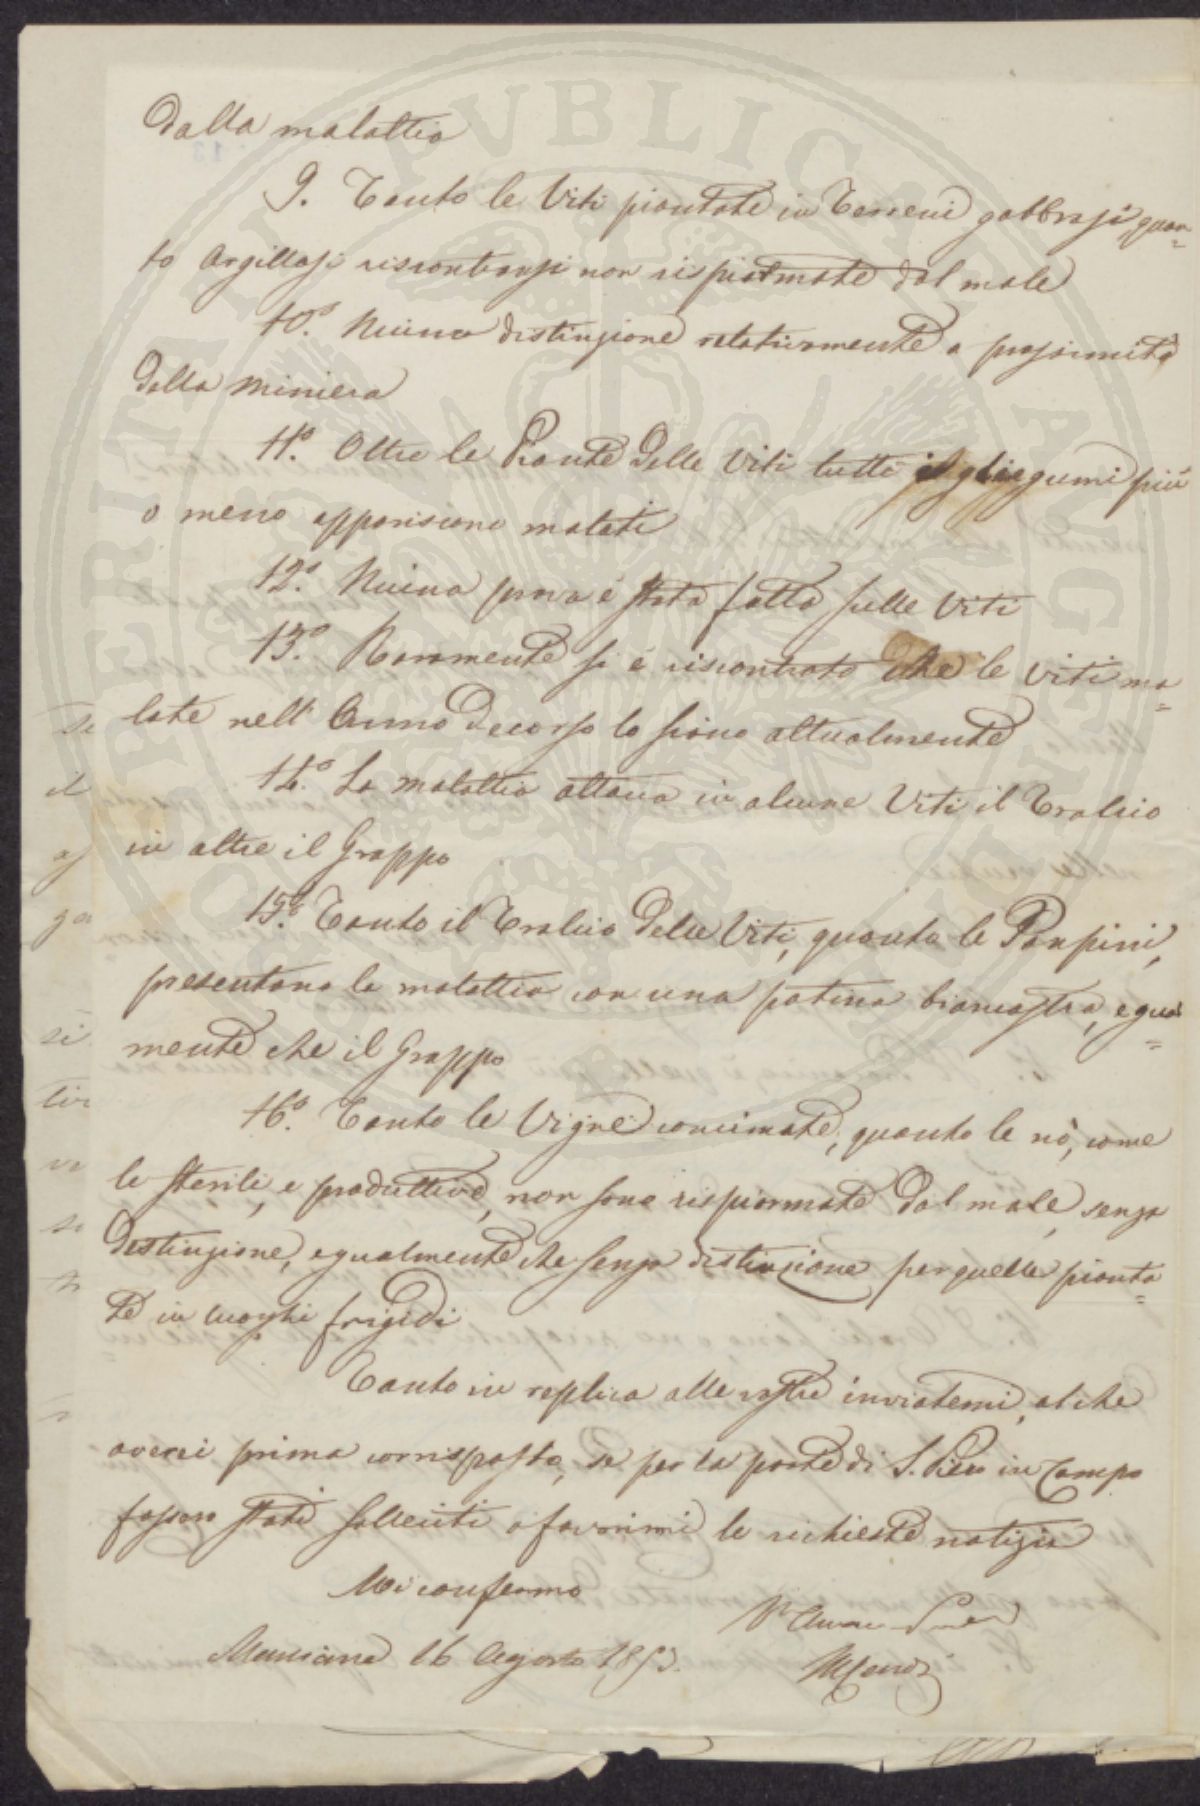 dalla malattia
9. Tanto le Viti piantate in Terreni gabbrosi, quan=
to Argillosi riscontransi non rispiarmate dal male
10.° Niuna distinzione relativamente a prossimità
della Miniera
11.° Oltre le Piante delle Viti tutti i legumi più
o meno appariscono malati
12.° Niuna prova è stata fatta sulle Viti
13.° Raramente si è riscontrato che le Viti ma=
late nell'Anno decorso lo siano attualmente
14.° La malattia attacca in alcune Viti il Tralcio
in altre il Grappo
15.° Tanto il Tralcio delle Viti, quanto le Panpini,
presentano la malattia con una patina biancastra, egual=
mente che il Grappo
16.° Tanto le Vigne concimate, quanto le nò, come
le sterili, e produttive, non sono rispiarmate dal male, senza
distinzione, egualmente che senza distinzione per quelle pianta=
te in luoghi frigidi
Tanto in replica alle vostre inviatemi, al che
averei prima corrisposto, se per la parte di S. Piero in Campo
fossero stati solleciti a favorirmi le richieste notizie
Mi confermo
Marciana 16 Agosto 1853.